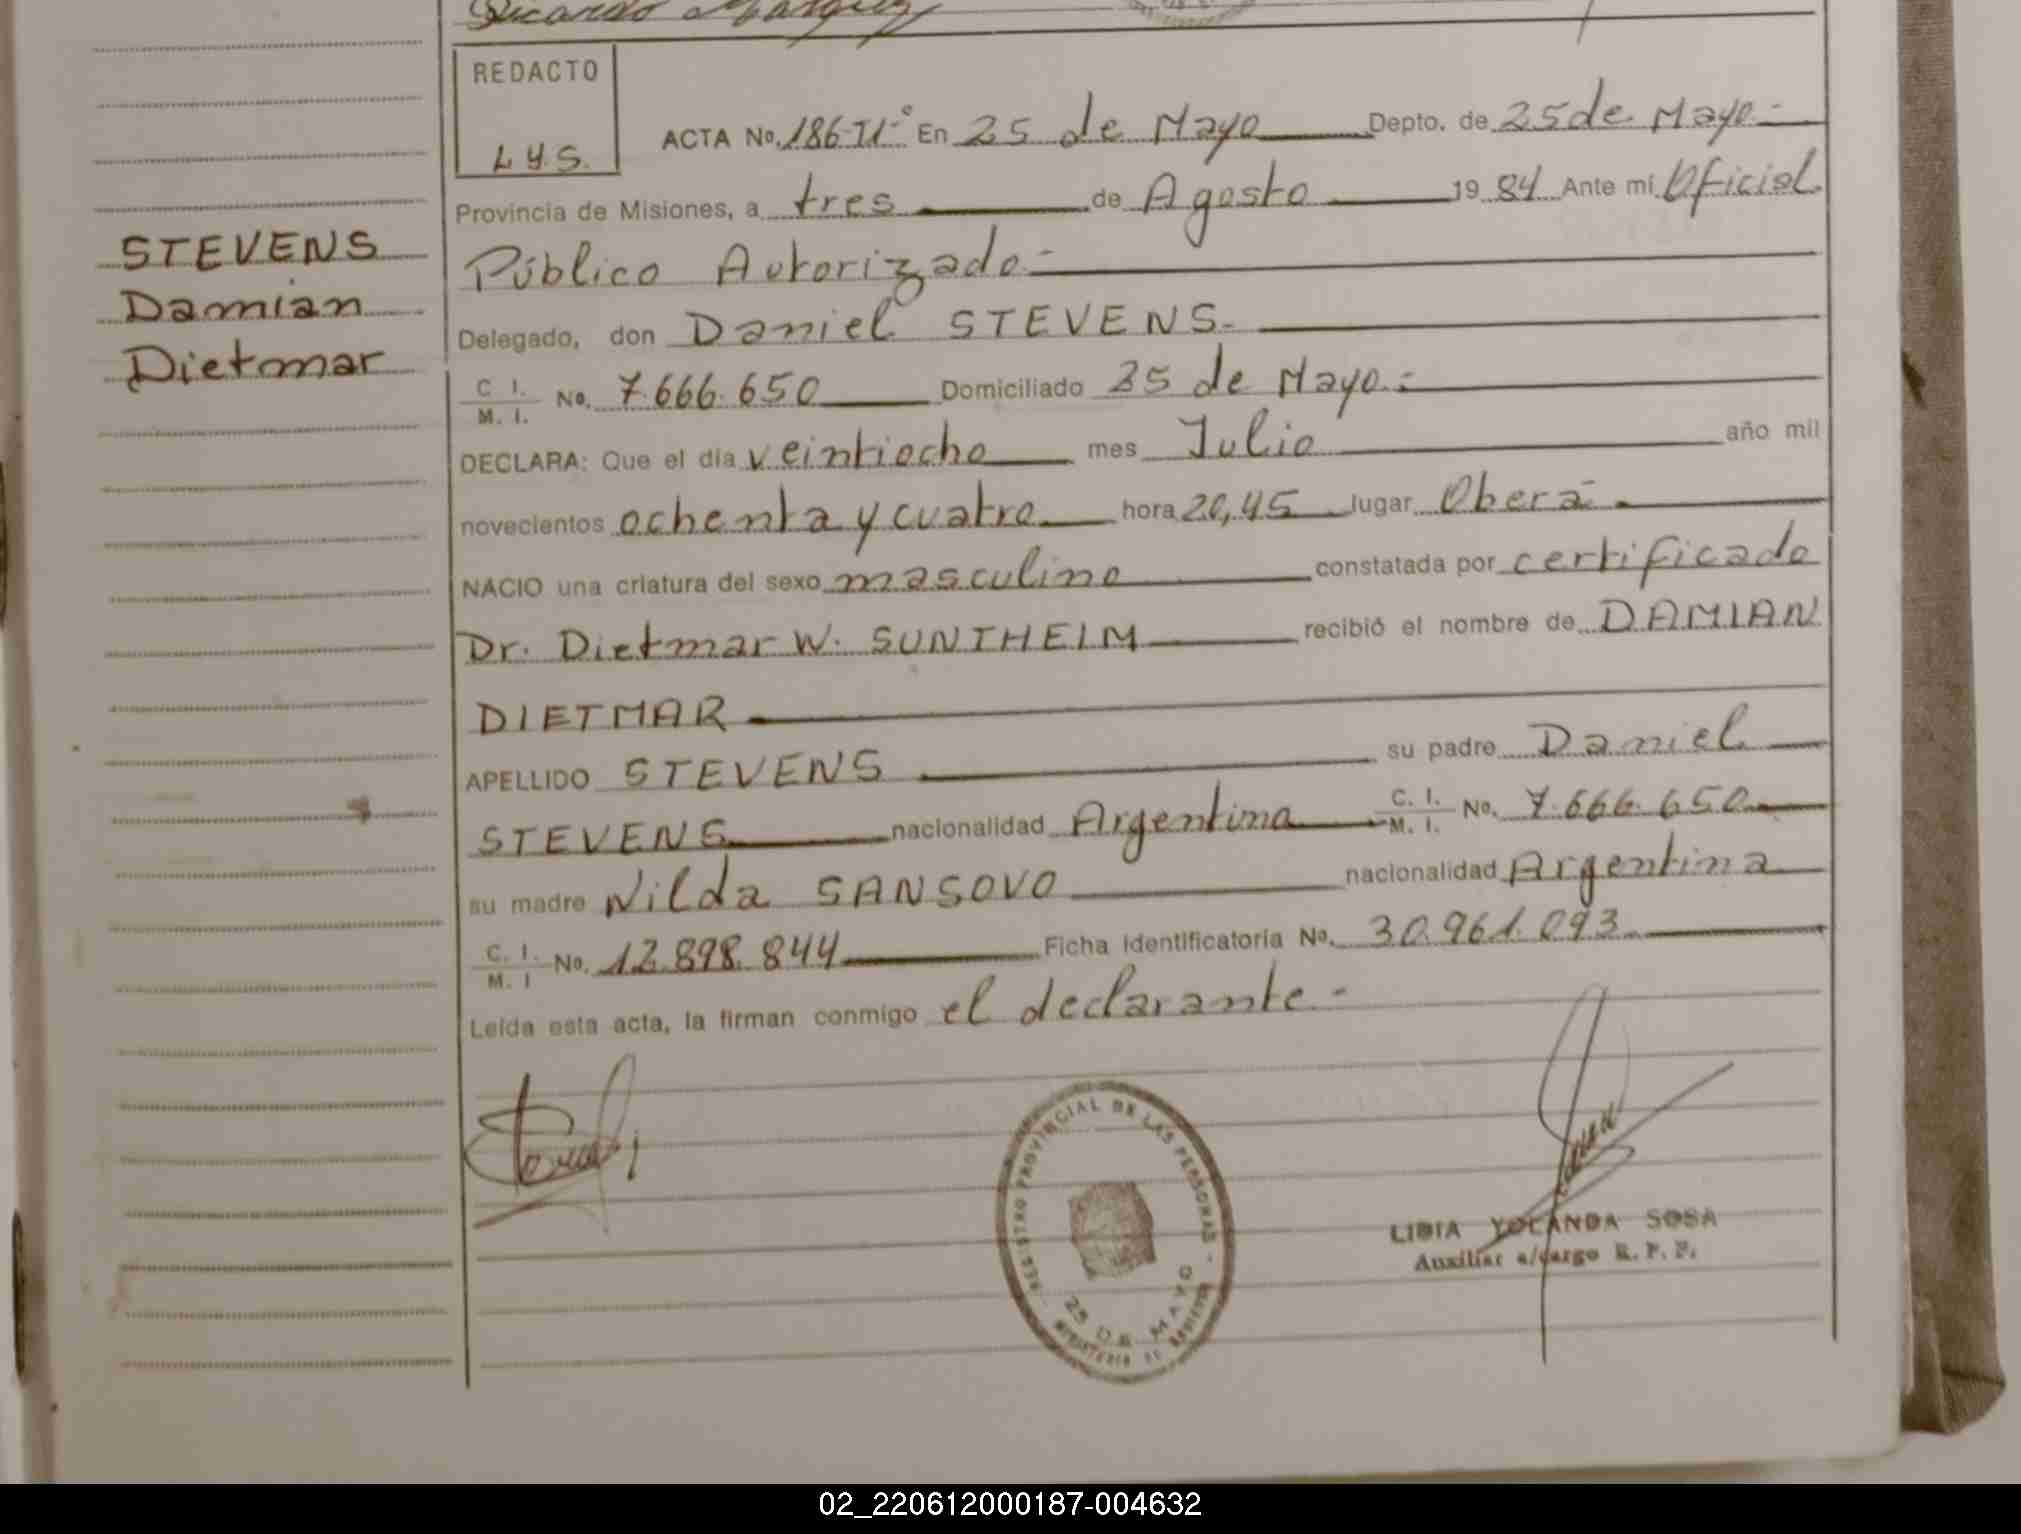 Ricardo Marquez
REDACTO
L.Y.S.
ACTA No. 186-TI-° En 25 de Mayo Depto. de 25 de Mayo.-
Provincia de Misiones, a tres de Agosto 1984 Ante mi Oficial
Público Autorizado.-
STEVENS
Damian
Dietmar
Delegado, don Daniel STEVENS.-
C I. M. I. No. 7.666.650 Domiciliado 25 de Mayo.-
DECLARA: Que el día veintiocho mes Julio año mil
novecientos ochenta y cuatro hora 20,45 lugar Oberá.-
NACIO una criatura del sexo masculino constatada por certificado
Dr. Dietmar W. SUNTHEIM recibió el nombre de DAMIAN
DIETMAR
APELLIDO STEVENS su padre Daniel
STEVENS nacionalidad Argentina C. I. M. I. No. 7.666.650
su madre Nilda SANSOVO nacionalidad Argentina
C. I. M. I No. 12.898.844 Ficha Identificatoria No. 30.961.093
Leída esta acta, la firman conmigo el declarante.-
REGISTRO PROVINCIAL DE LAS PERSONAS
25 DE MAYO
MINISTERIO DE
LIDIA YOLANDA SOSA
Auxiliar a/cargo R. P. P.
02_220612000187-004632